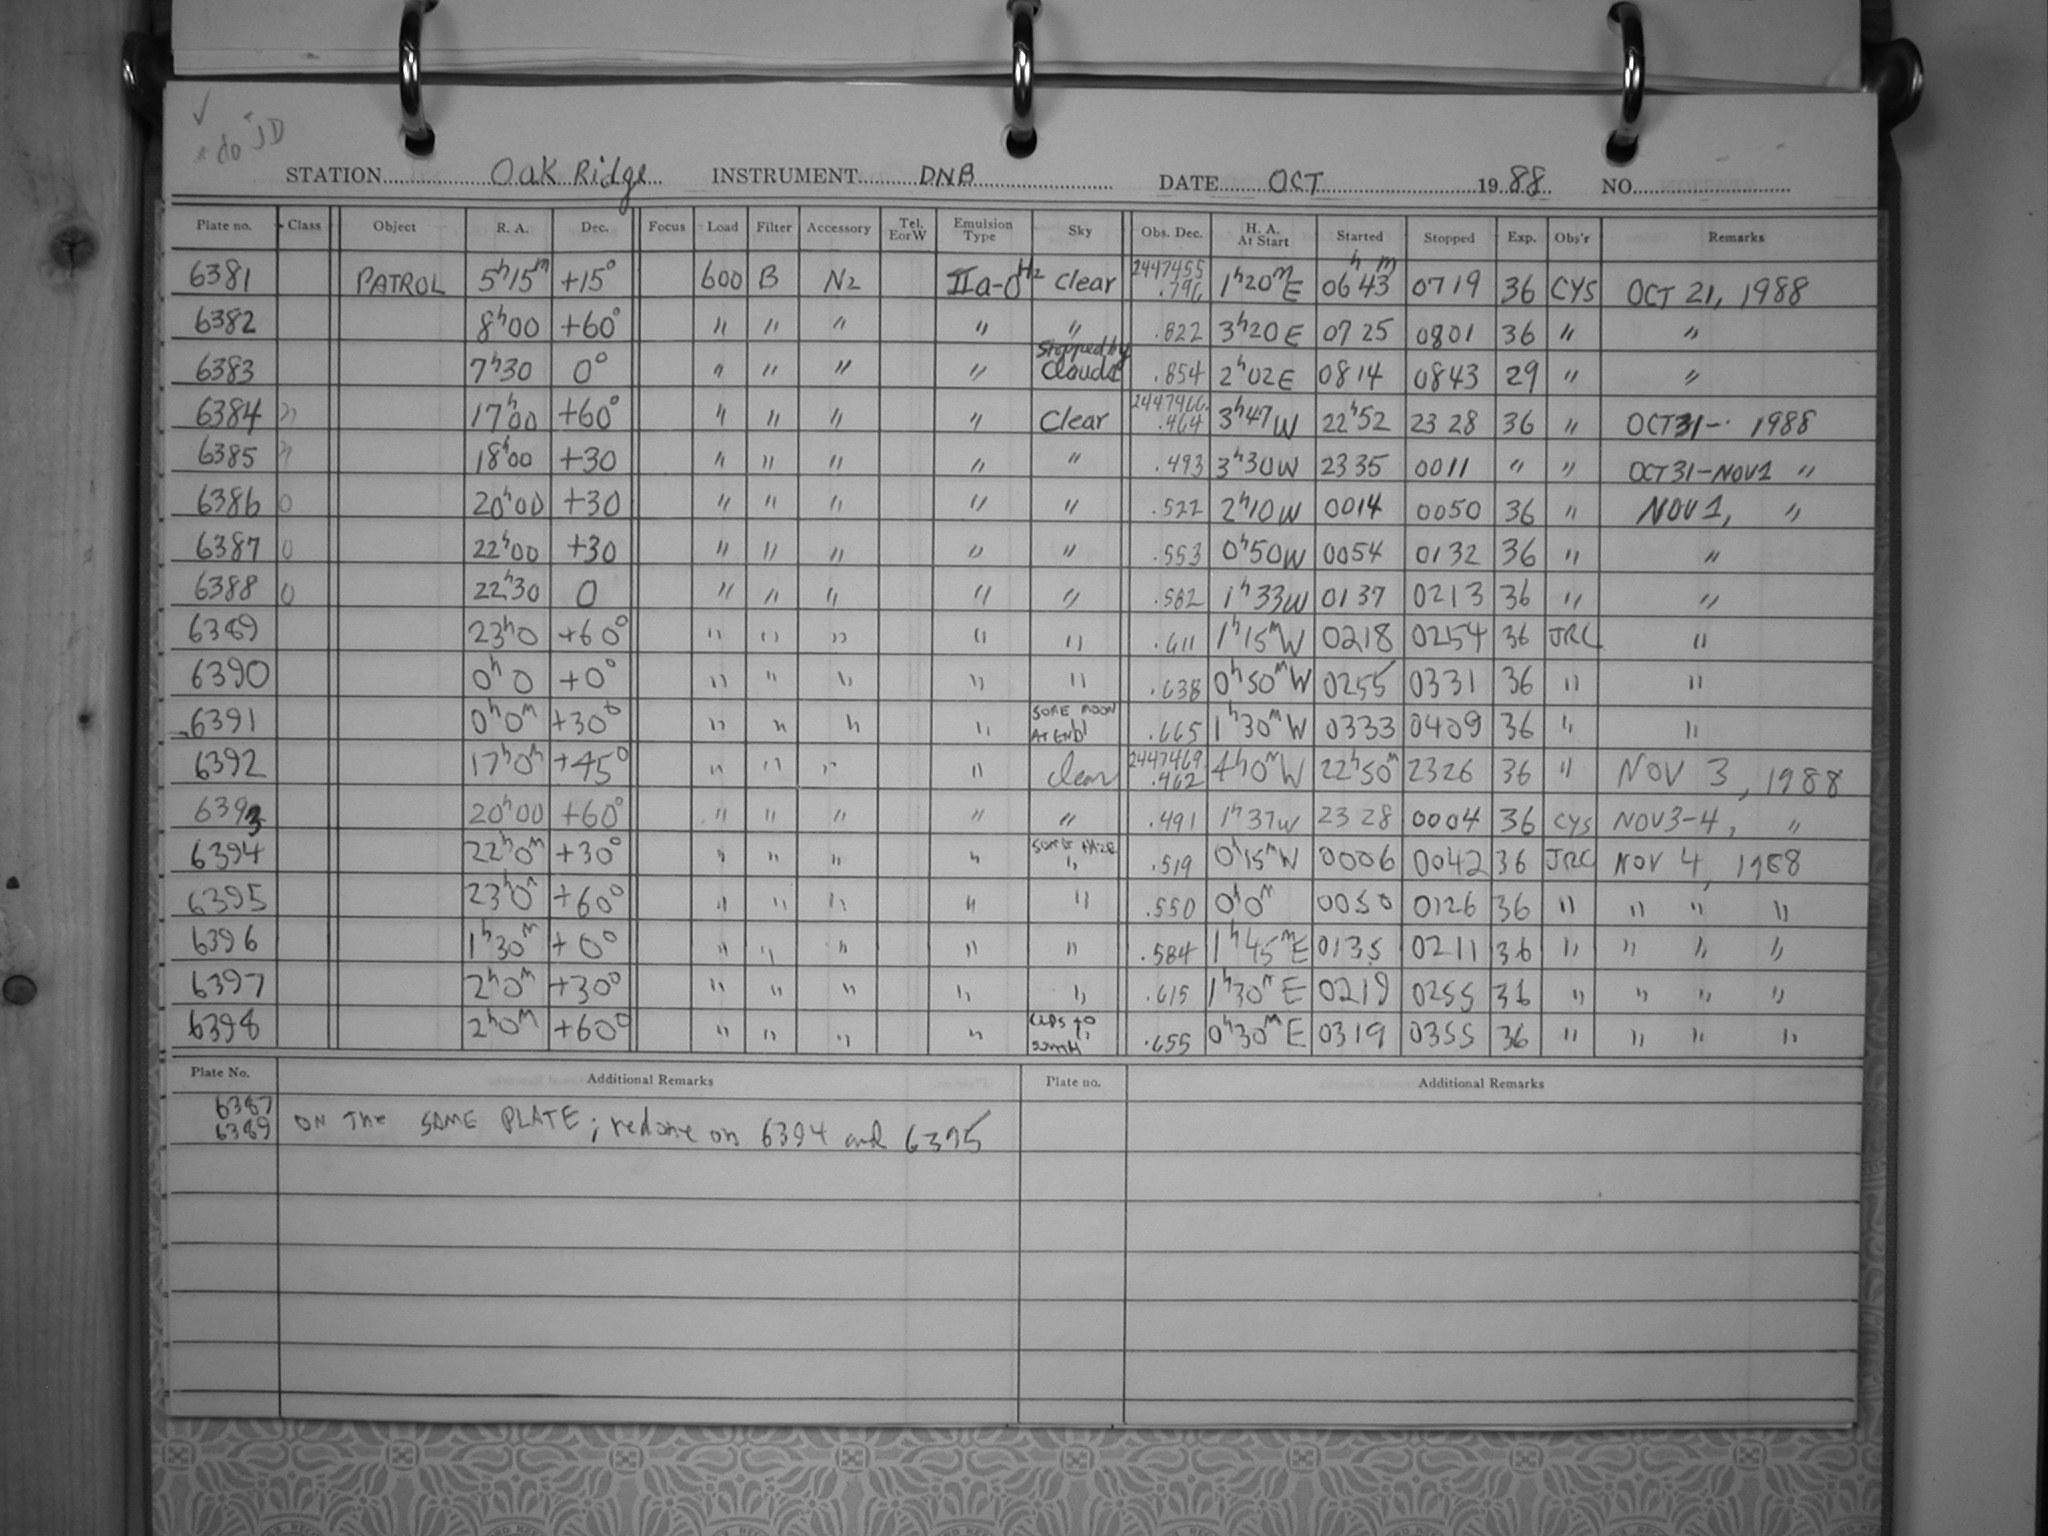 ✓
* do JD
STATION Oak Ridge INSTRUMENT DNB DATE OCT 1988 NO.
Plate no. Class Object R. A. Dec. Focus Load Filter Accessory Tel. E or W Emulsion Type Sky Obs. Dec. H. A. At Start Started Stopped Exp. Obs'r Remarks
6381 PATROL 5h15m +15° 600 B N2 IIa-O H2 Clear 2447455.796 1h20mE 06h43m 0719 36 CYS OCT 21, 1988
6382 8h00 +60° " " " " " .822 3h20E 0725 0801 36 " "
6383 7h30 0° " " " " Stopped by Clouds .854 2h02E 0814 0843 29 " "
6384 17h00 +60° " " " " Clear 2447466.464 3h47W 22h52 2328 36 " OCT 31-- 1988
6385 18h00 +30 " " " " " .493 3h30W 2335 0011 " " OCT 31-NOV 1 "
6386 0 20h00 +30 " " " " " .522 2h10W 0014 0050 36 " NOV 1, "
6387 0 22h00 +30 " " " " " .553 0h50W 0054 0132 36 " "
6388 0 22h30 0 " " " " " .582 1h33W 0137 0213 36 " "
6389 23h0 +60° " " " " " .611 1h15mW 0218 0254 36 JRC "
6390 0h0 +0° " " " " " .638 0h50mW 0255 0331 36 " "
6391 0h0m +30° " " " " SOME MOON AT END .665 1h30mW 0333 0409 36 " "
6392 17h0m +45° " " " " Clear 2447469.462 4h0mW 22h50m 2326 36 " NOV 3, 1988
6393 20h00 +60° " " " " " .491 1h37W 2328 0004 36 CYS NOV 3-4, "
6394 22h0m +30° " " " " SOME HAZE " .519 0h15mW 0006 0042 36 JRC NOV 4, 1988
6395 23h0m +60° " " " " " .550 0h0m 0050 0126 36 " " " "
6396 1h30m +0° " " " " " .584 1h45mE 0135 0211 36 " " " "
6397 2h0m +30° " " " " " .615 1h30mE 0219 0255 36 " " " "
6398 2h0m +60° " " " " to South .655 0h30mE 0319 0355 36 " " " "
Plate No. Additional Remarks Plate no. Additional Remarks
6387
6389 ON The SAME PLATE; redone on 6394 and 6395